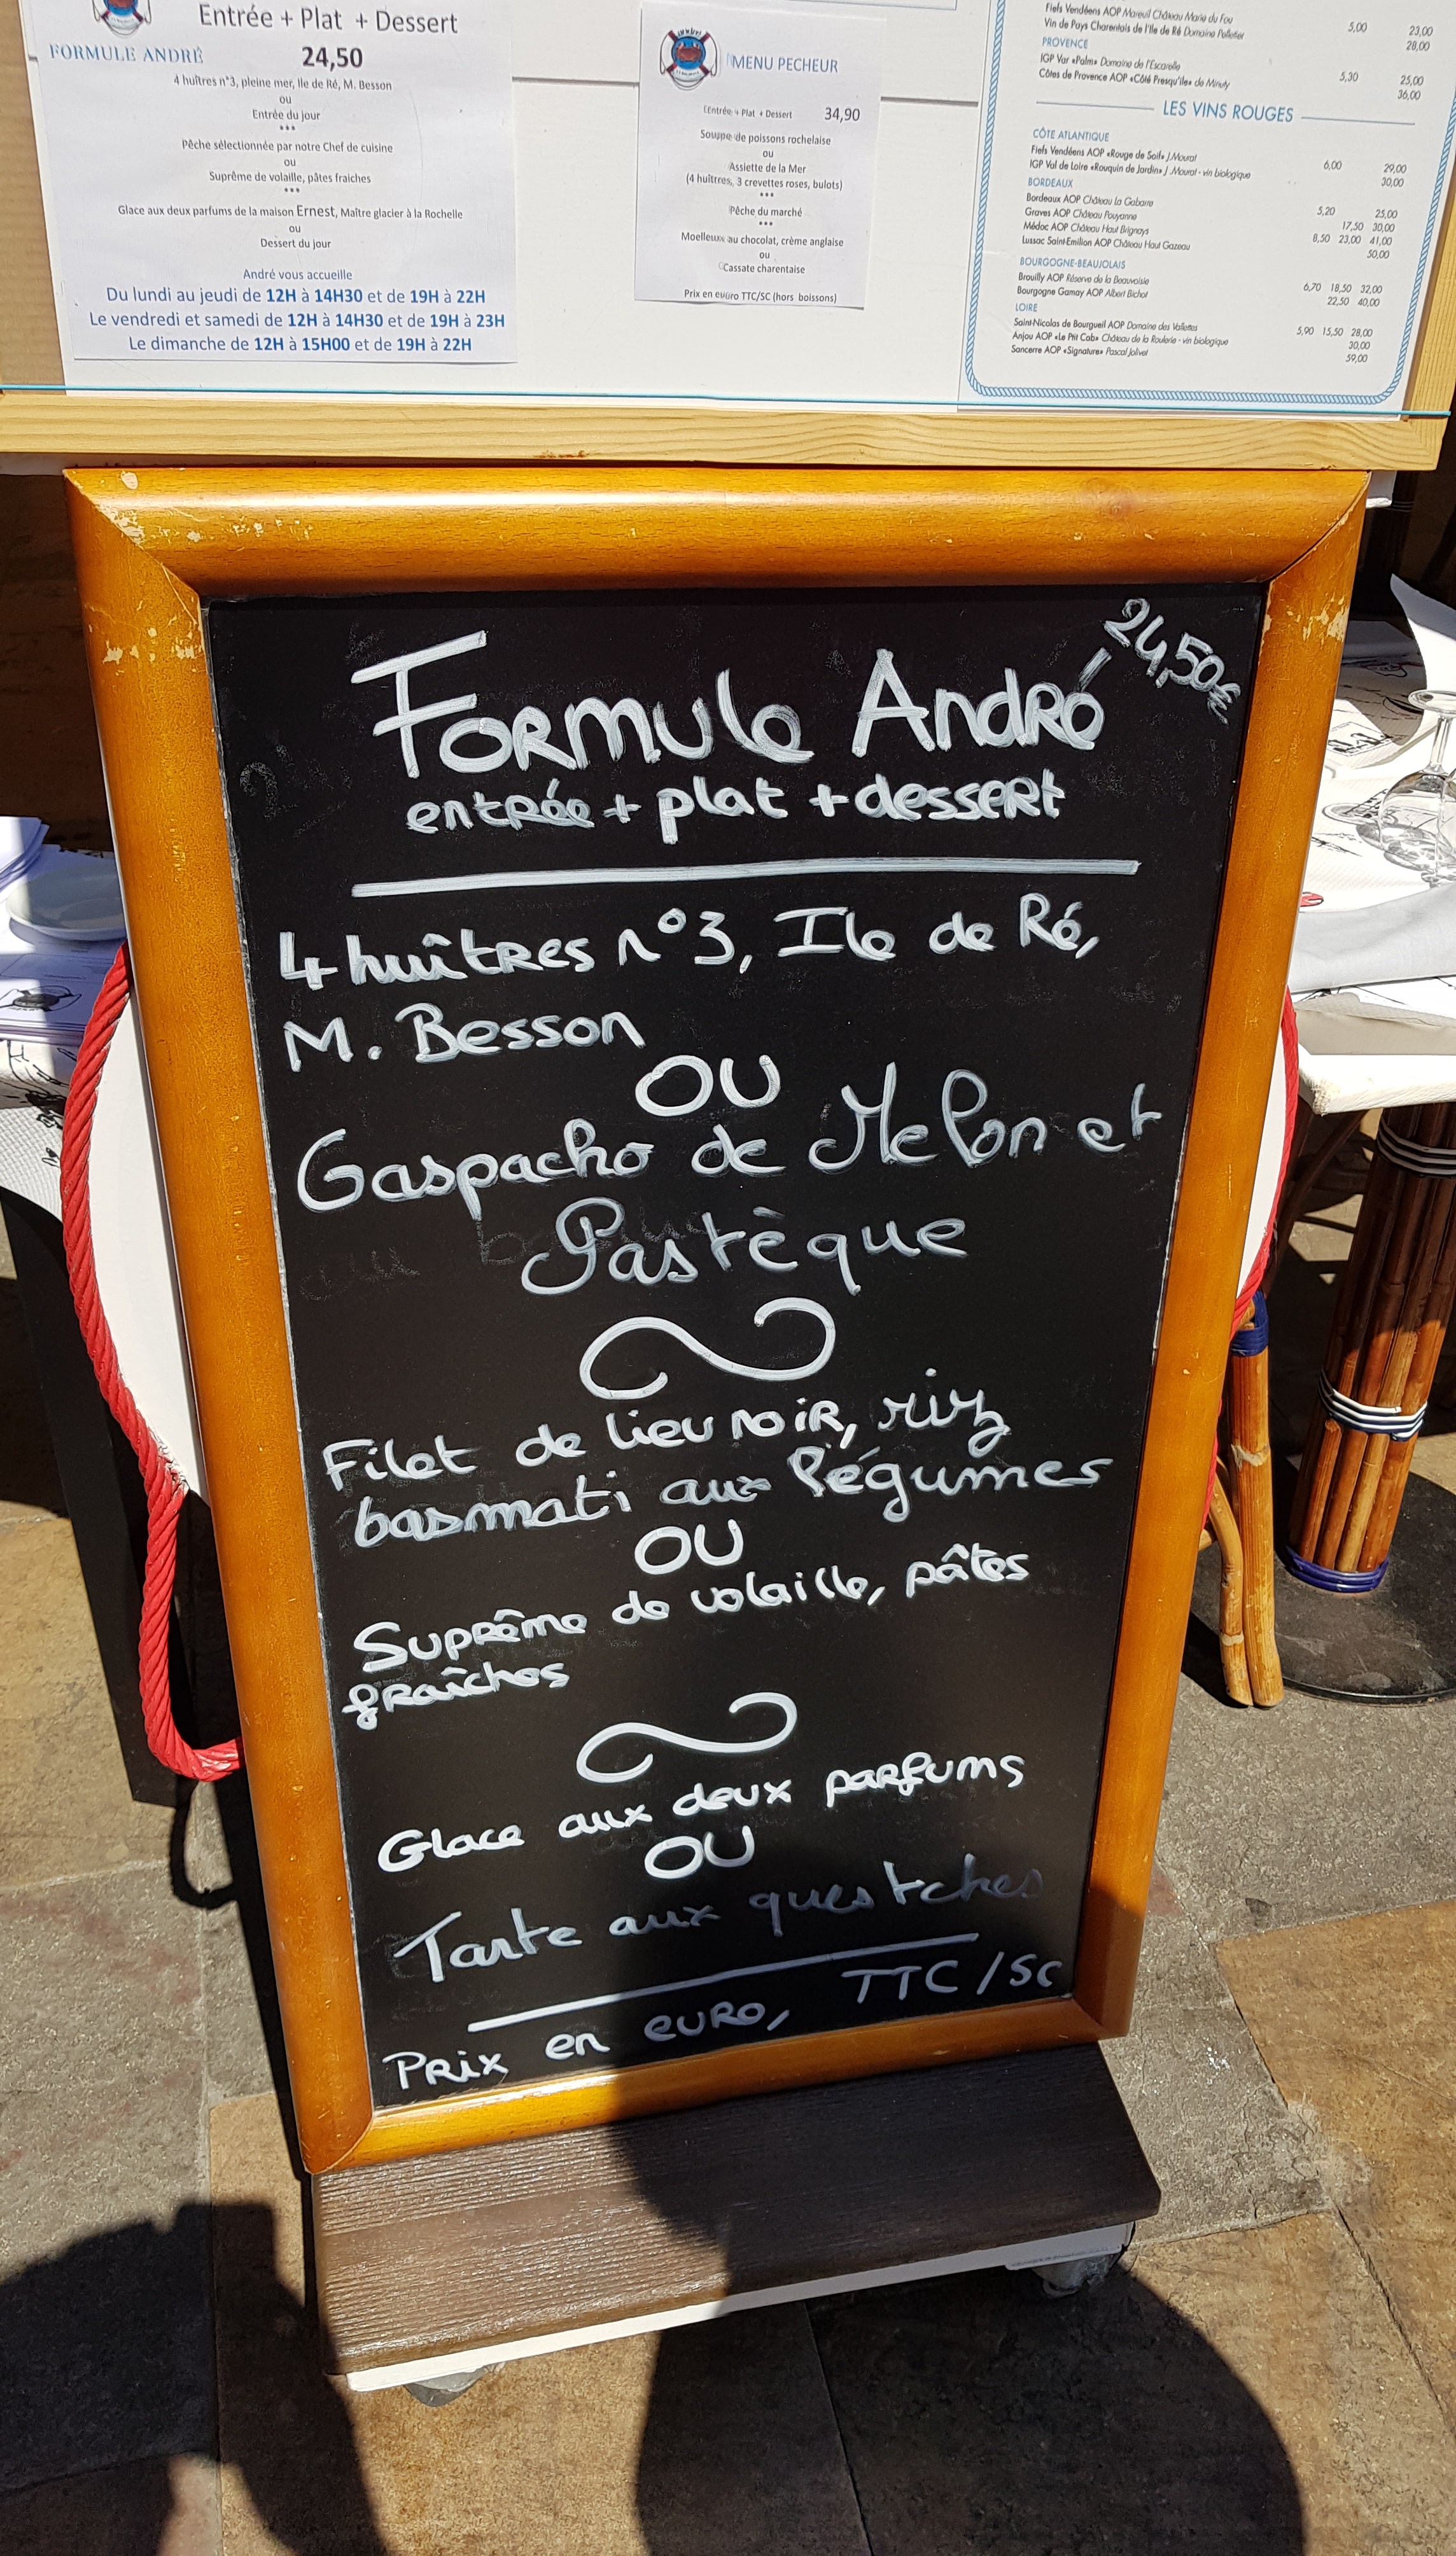 Entrée + Plat + Dessert
FORMULE ANDRÉ
24,50
4 huîtres n°3, pleine mer, Ile de Ré, M. Besson
ou
Entrée du jour
***
Pêche sélectionnée par notre Chef de cuisine
ou
Suprême de volaille, pâtes fraiches
***
Glace aux deux parfums de la maison Ernest, Maître glacier à la Rochelle
ou
Dessert du jour
André vous accueille
Du lundi au jeudi de 12H à 14H30 et de 19H à 22H
Le vendredi et samedi de 12H à 14H30 et de 19H à 23H
Le dimanche de 12H à 15H00 et de 19H à 22H
MENU PECHEUR
Entrée + Plat + Dessert 34,90
Soupe de poissons rochelaise
ou
Assiette de la Mer
(4 huîtres, 3 crevettes roses, bulots)
***
Pêche du marché
***
Moelleux au chocolat, crème anglaise
ou
Cassate charentaise
Prix en euro TTC/SC (hors boissons)
Fiefs Vendéens AOP Mareuil Château Marie du Fou 5,00 23,00
Vin de Pays Charentais de l'Ile de Ré Domaine Pelletier 28,00
PROVENCE
IGP Var «Palm» Domaine de l'Escarelle 5,30 25,00
Côtes de Provence AOP «Côté Presqu'île» de Minuty 36,00
LES VINS ROUGES
CÔTE ATLANTIQUE
Fiefs Vendéens AOP «Rouge de Soif» J.Mourat 6,00 29,00
IGP Val de Loire «Rouquin de Jardin» J.Mourat - vin biologique 30,00
BORDEAUX
Bordeaux AOP Château La Gabarre 5,20 25,00
Graves AOP Château Pouyanne 17,50 30,00
Médoc AOP Château Haut Brignays 8,50 23,00 41,00
Lussac Saint-Emilion AOP Château Haut Gazeau 50,00
BOURGOGNE-BEAUJOLAIS
Brouilly AOP Réserve de la Beauvoisie 6,70 18,50 32,00
Bourgogne Gamay AOP Albert Bichot 22,50 40,00
LOIRE
Saint-Nicolas de Bourgueil AOP Domaine des Vallettes 5,90 15,50 28,00
Anjou AOP «Le Ptit Cab» Château de la Roulerie - vin biologique 30,00
Sancerre AOP «Signature» Pascal Jolivet 59,00
24,50€
Formule André
entrée + plat + dessert
4 huîtres n°3, Ile de Ré,
M. Besson
OU
Gaspacho de Melon et
Pastèque
Filet de lieu noir, riz
basmati aux légumes
OU
Suprême de volaille, pâtes
fraîches
Glace aux deux parfums
OU
Tarte aux questches
Prix en euro, TTC/SC